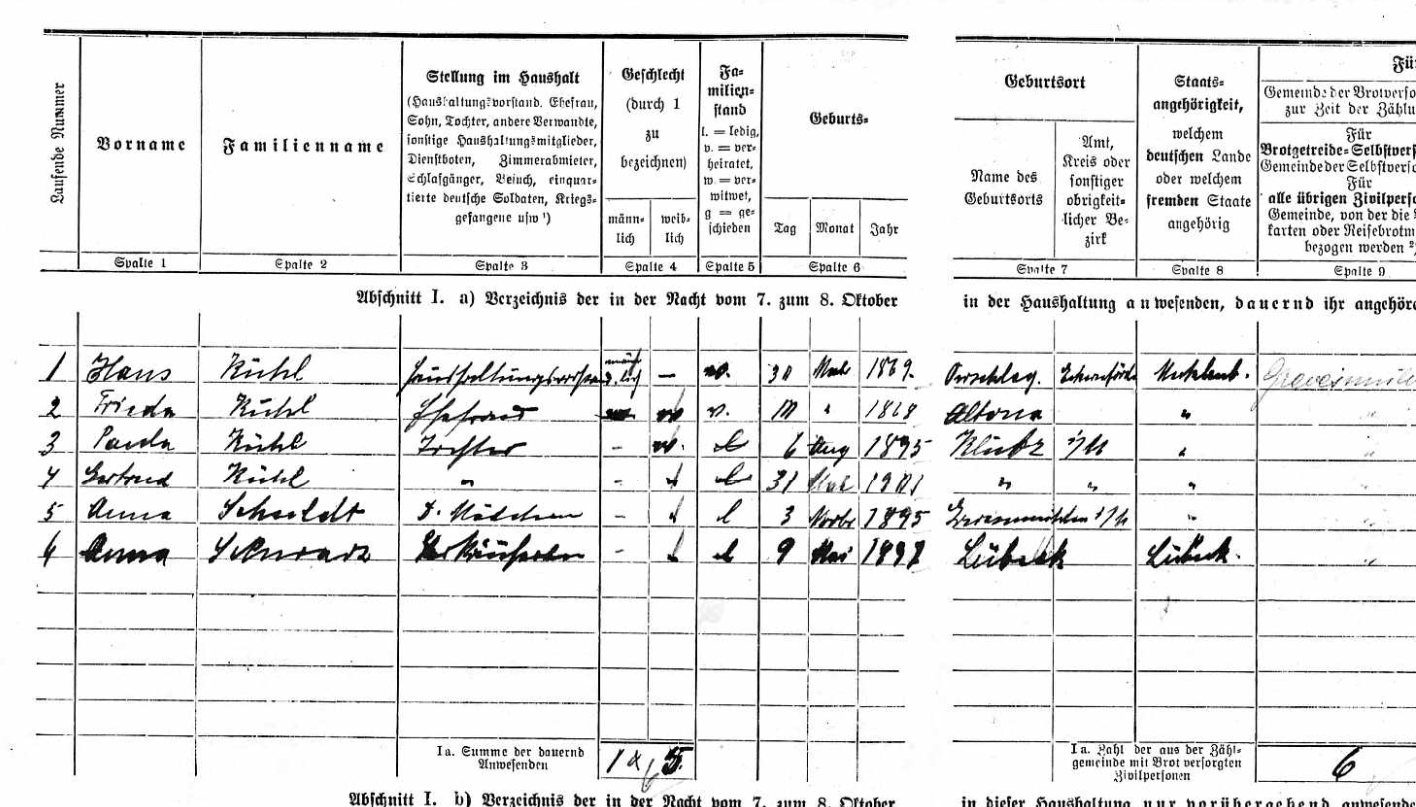 Laufende Nummer
Vorname
Familienname
Stellung im Haushalt
(Haushaltungsvorstand. Ehefrau,
Sohn, Tochter, andere Verwandte,
sonstige Haushaltungsmitglieder,
Dienstboten, Zimmerabmieter,
Schlafgänger, Besuch, einquar-
tierte deutsche Soldaten, Kriegs-
gefangene usw ¹)
Geschlecht
(durch 1
zu
bezeichnen)
männ-
lich
weib-
lich
Fa-
milien-
stand
l. = ledig,
v. = ver-
heiratet,
w. = ver-
witwet,
g = ge-
schieden
Geburts-
Tag
Monat
Jahr
Geburtsort
Name des
Geburtsorts
Amt,
Kreis oder
sonstiger
obrigkeit-
licher Be-
zirk
Staats-
angehörigkeit,
welchem
deutschen Lande
oder welchem
fremden Staate
angehörig
Für
Gemeinde der Brotverso
zur Zeit der Zählu
Für
Brotgetreide-Selbstvers
Gemeinde der Selbstverso
Für
alle übrigen Zivilperso
Gemeinde, von der die
karten oder Reisebrotm
bezogen werden
Spalte 1
Spalte 2
Spalte 3
Spalte 4
Spalte 5
Spalte 6
Spalte 7
Spalte 8
Spalte 9
Abschnitt I. a) Verzeichnis der in der Nacht vom 7. zum 8. Oktober in der Haushaltung anwesenden, dauernd ihr angehöre
1 Hans Kühl Haushaltungsvorstand männlich – v. 30 1869. Eckernförde Mecklenb.
2 Frieda Kühl Ehefrau v. " Altona "
3 Paula Kühl Tochter - l 6 Aug 1895 Klütz i/M "
4 Gertrud Kühl " - l 31 1901 " " "
5 Anna D. Mädchen - l 3 Novbr 1895 Grevesmühlen i/M "
6 Anna Schwarz Verkäuferin - l 9 Mai Lübeck Lübeck. "
Ia. Summe der dauernd
Anwesenden
1 5.
Ia. Zahl der aus der Zähl-
gemeinde mit Brot versorgten
Zivilpersonen
6
Abschnitt I. b) Verzeichnis der in der Nacht vom 7. zum 8. Oktober in dieser Haushaltung nur vorübergehend anwesende